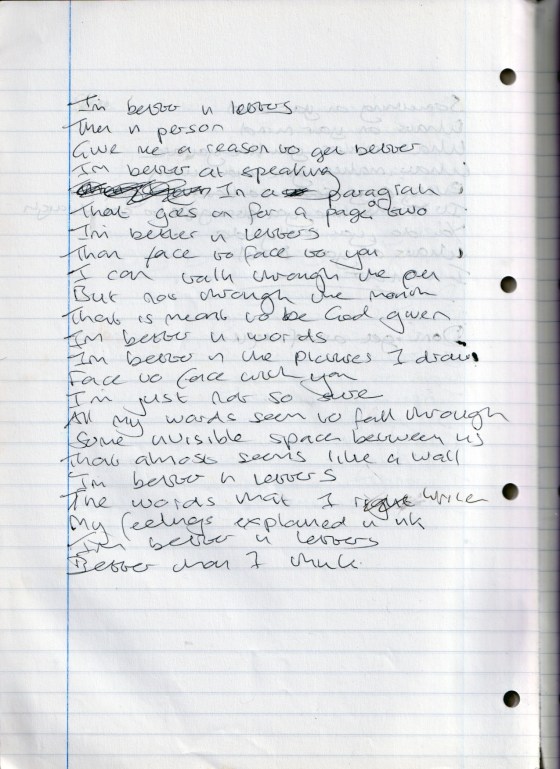 Im better in letters
Then in person
Give me a reason to get better
Im better at speaking
In a paragraph
That goes on for a page or two
Im better in letters
Than face to face to you
I can talk through the pen
But not through the mouth
That is meant to be God given
Im better in words
Im better in the pictures I draw
Face to face with you
I'm just not so sure
All my words seem to fall through
Some invisible space between us
That almost seems like a wall
Im better in letters
The words that I write
My feelings explained in ink
I'm better in letters
Better than I think.